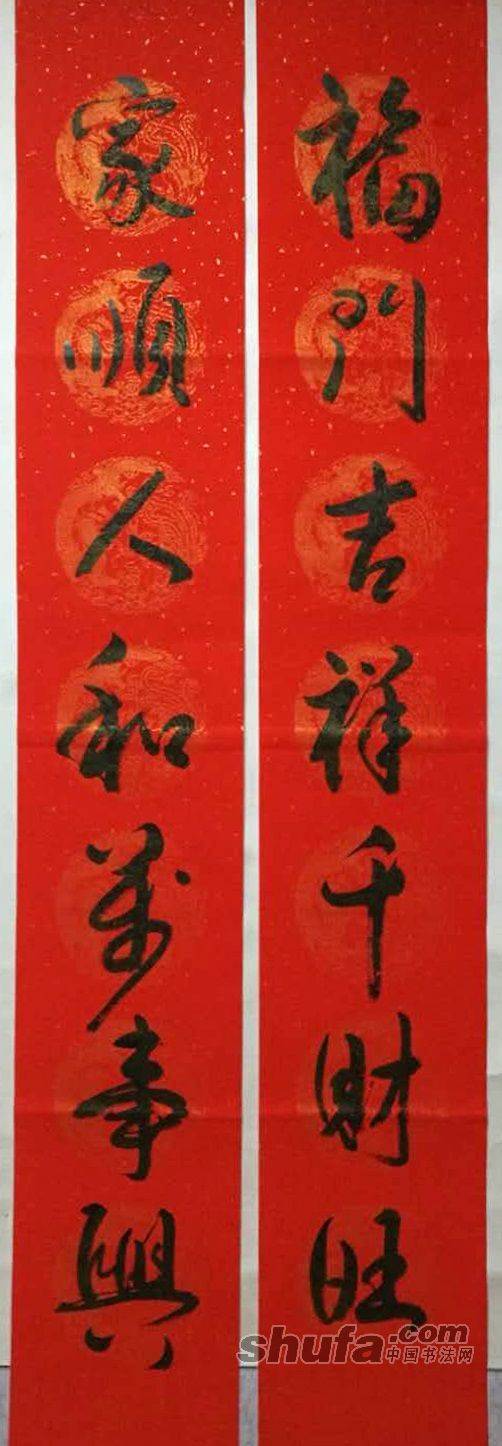 福門吉祥千財旺
家順人和萬事興
shufa.com
中国书法网